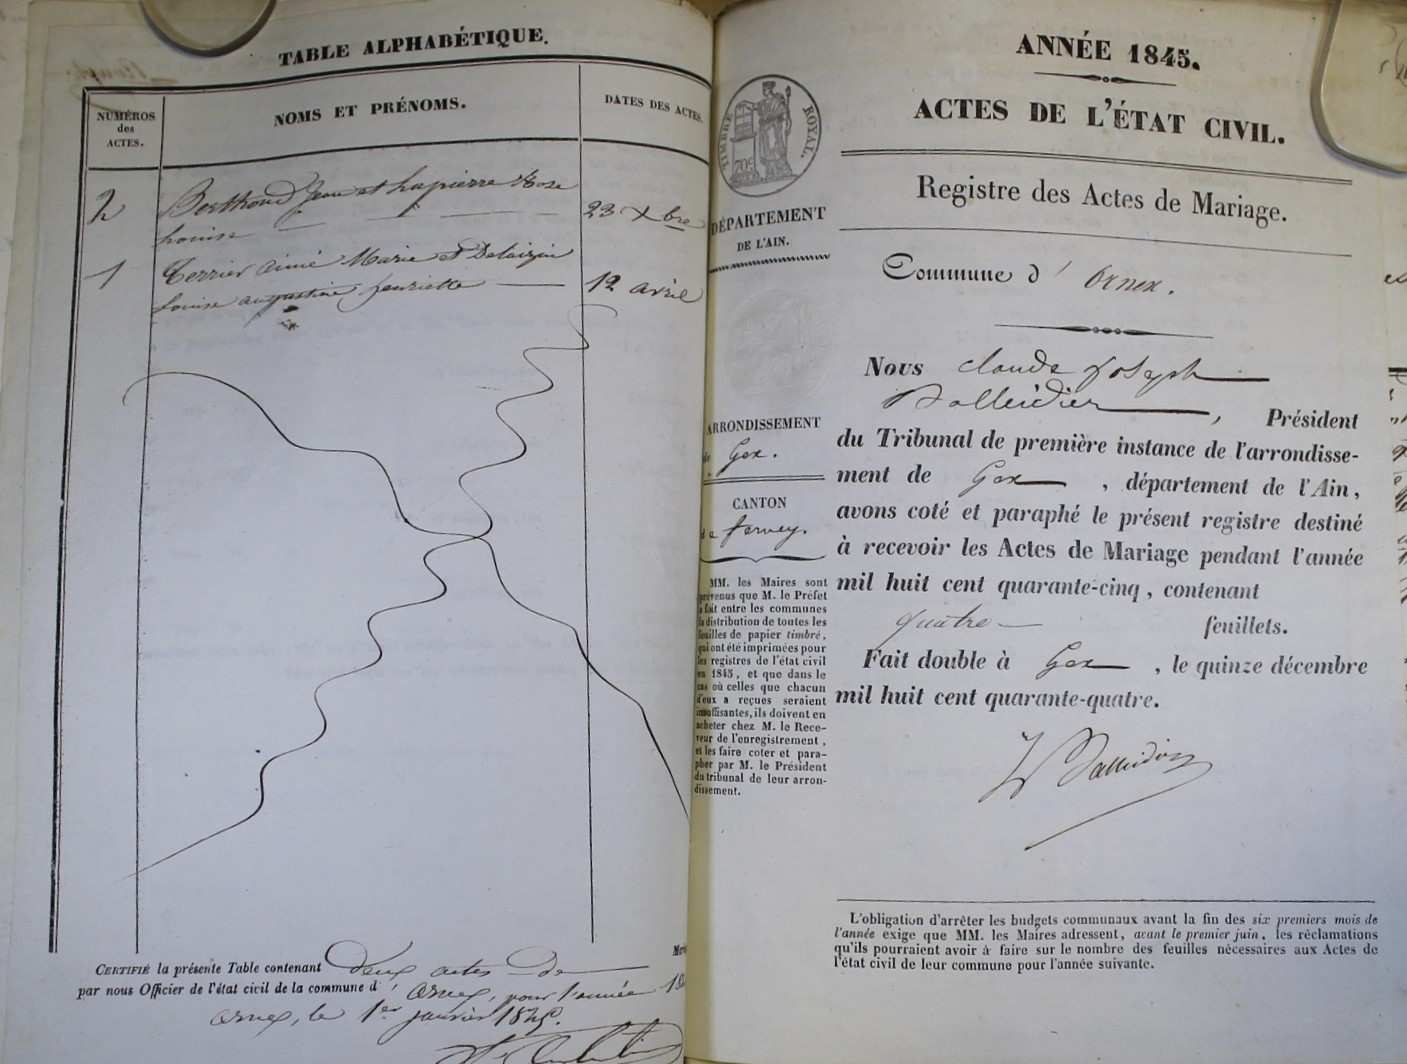 TABLE ALPHABÉTIQUE.
NUMÉROS
des
ACTES.
NOMS ET PRÉNOMS.
DATES DES ACTES.
2 Berthoud Jean et Lapierre Rose 23 Xbre
Louise
1 Terrier aimé Marie et Delaizin
Louise augustine henriette 12 avril
CERTIFIÉ la présente Table contenant deux actes de
par nous Officier de l'état civil de la commune d' ornex, pour l'année 18
ornex, le 1er janvier 1845.
ANNÉE 1845.
ACTES DE L'ÉTAT CIVIL.
TIMBRE ROYAL.
70c
DÉPARTEMENT
DE L'AIN.
Registre des Actes de Mariage.
Commune d' Ornex.
ARRONDISSEMENT
de Gex.
CANTON
de ferney.
MM. les Maires sont
prévenus que M. le Préfet
a fait entre les communes
la distribution de toutes les
feuilles de papier timbré,
qui ont été imprimées pour
les registres de l'état civil
en 1845, et que dans le
cas où celles que chacun
d'eux a reçues seraient
insuffisantes, ils doivent en
acheter chez M. le Rece-
veur de l'enregistrement,
et les faire coter et para-
pher par M. le Président
du tribunal de leur arron-
dissement.
Nous claude joseph
Balleidier, Président
du Tribunal de première instance de l'arrondisse-
ment de Gex, département de l'Ain,
avons coté et paraphé le présent registre destiné
à recevoir les Actes de Mariage pendant l'année
mil huit cent quarante-cinq, contenant
quatre feuillets.
Fait double à Gex, le quinze décembre
mil huit cent quarante-quatre.
Balleidier
L'obligation d'arrêter les budgets communaux avant la fin des six premiers mois de
l'année exige que MM. les Maires adressent, avant le premier juin, les réclamations
qu'ils pourraient avoir à faire sur le nombre des feuilles nécessaires aux Actes de
l'état civil de leur commune pour l'année suivante.